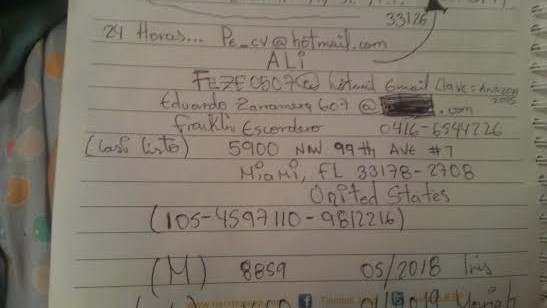 33126
24 Horas... Pe_cv@hotmail.com
ALi
FEZE0807@ hotmail Gmail Clave = Amazon 2015
Eduardo Zanamerg 607 @ .com
Franklin Escordero 0416-6544226
(Casi listo) 5900 NW 99th AVE #7
MiaMi, FL 33178-2708
United States
(105-4597110-9812216)
(M) 8859 05/2018 Iris